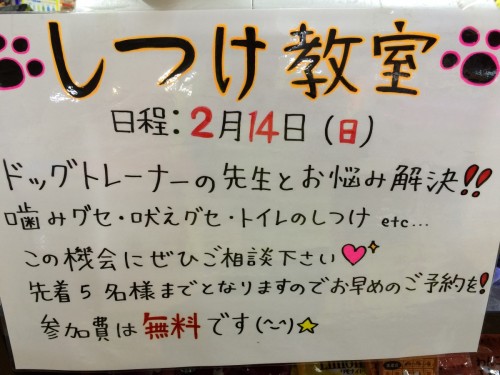 しつけ教室
日程:2月14日(日)
ドッグトレーナーの先生とお悩み解決!!
噛みグセ・吠えグセ・トイレのしつけ etc...
この機会にぜひご相談下さい
先着5名様までとなりますのでお早めのご予約を!
参加費は無料です(^-^)